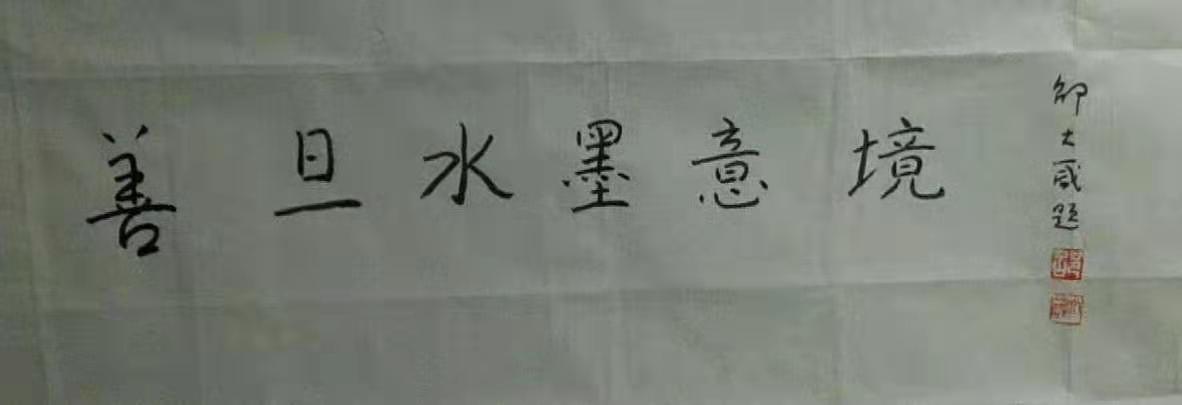 善旦水墨意境
邵大箴题